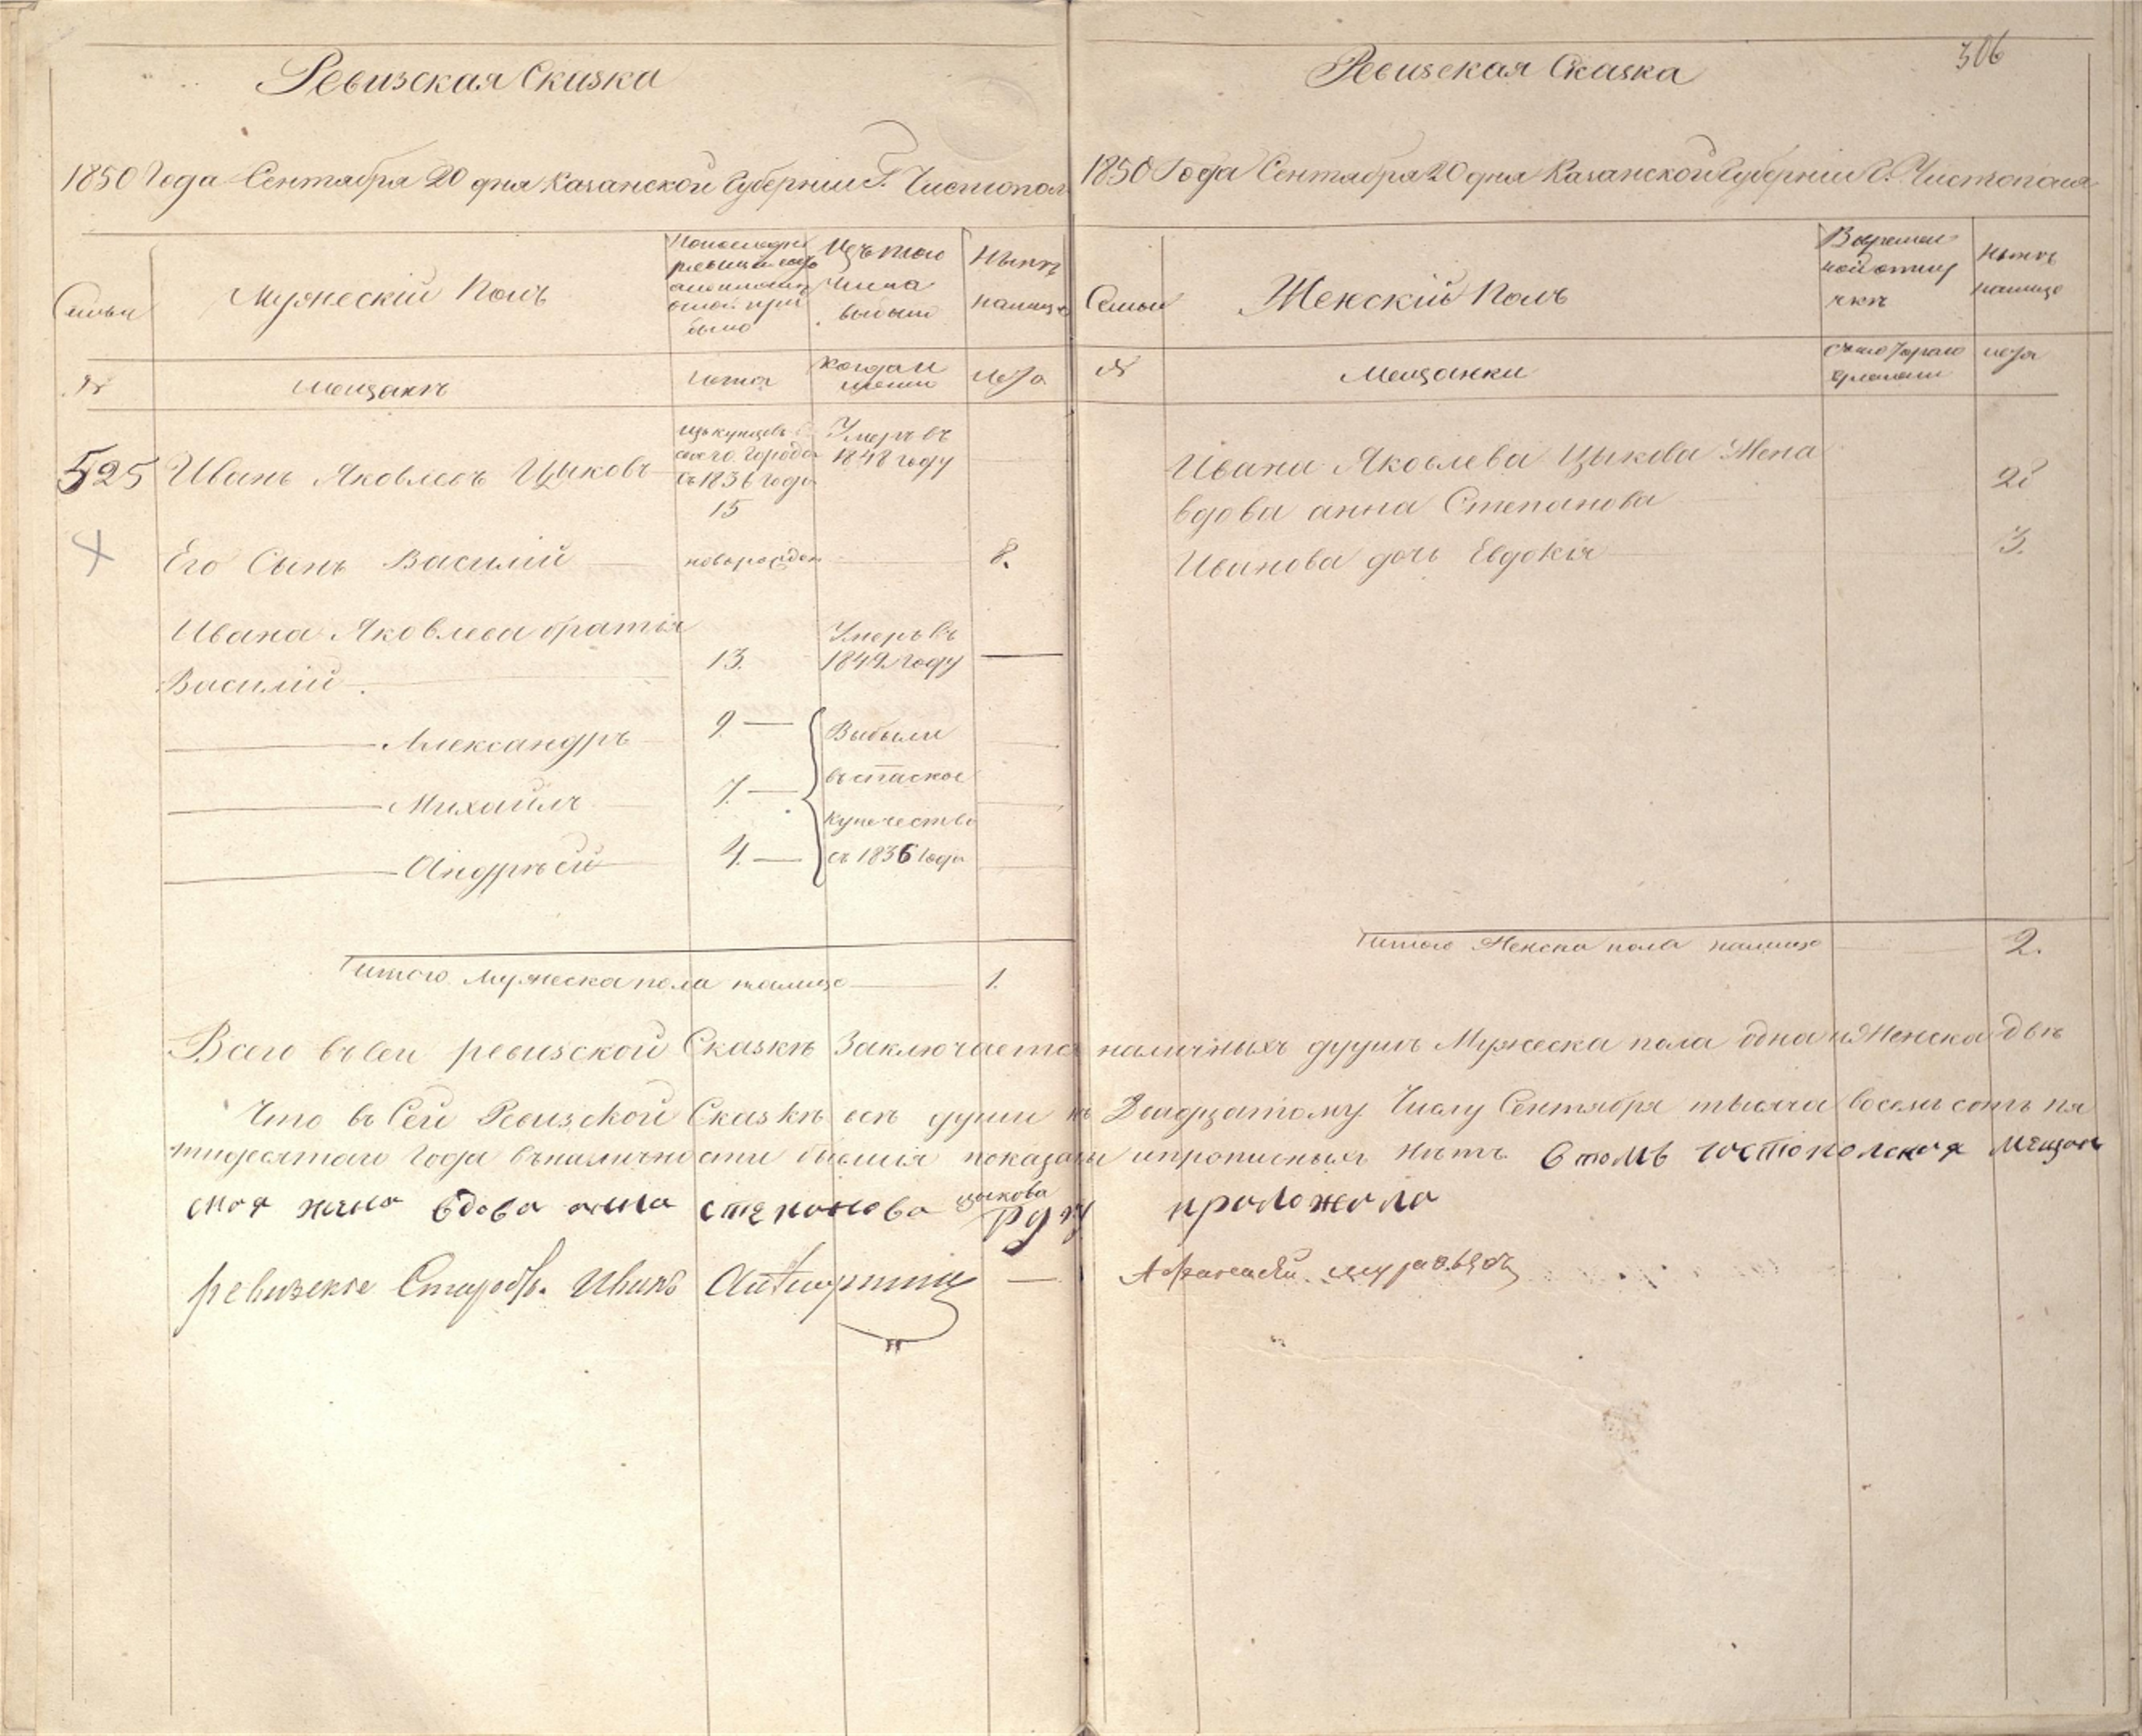 Ревизская Сказка
1850 Года Сентября 20 дня Казанской Губернии Г. Чистопол
Семьи
Мужескій Полъ
По последней
ревизіи состо
было
Изъ того
числа
выбыло
Нынѣ
налицо
№
мещанѣ
лѣта
когда и
лѣта
525
Иванъ Яковлевъ Цыковъ
изъ купцовъ
сего Города
съ 1836 года
15
Умеръ въ
1848 году
Его Сынъ Василій
новорожден
8.
Ивана Яковлева братья
Василій
13.
Умеръ въ
1849 году
Александръ
9
Михайлъ
7.
Андрѣй
4.
Выбыли
въ спаское
купечество
съ 1836 года
Итого мужеска пола налицо
1.
306
Ревизская Сказка
1850 Года Сентября 20 дня Казанской Губерніи Г. Чистополя
Семьи
Женскій Полъ
Во времен
ной отлу
чкѣ
Нынѣ
налицо
№
Мещанки
лѣта
Ивана Яковлева Цыкова Жена
вдова анна Степанова
28
Иванова дочь Евдокія
3.
Итого Женска пола налицо
2.
Всего въ сей ревизской Сказкѣ Заключается наличныхъ душъ Мужеска пола одна и Женска двѣ
Что въ Сей Ревизской Сказкѣ всѣ души къ Двадцатому Числу Сентября тысяча восемь сотъ пя
тидесятаго Года въ наличности бывшія показаны и прописныхъ нѣтъ в томъ чистопольская мещан
ская жена вдова анна степанова цыкова руку приложила
ревизскіе Староста Иванъ
Афанасей